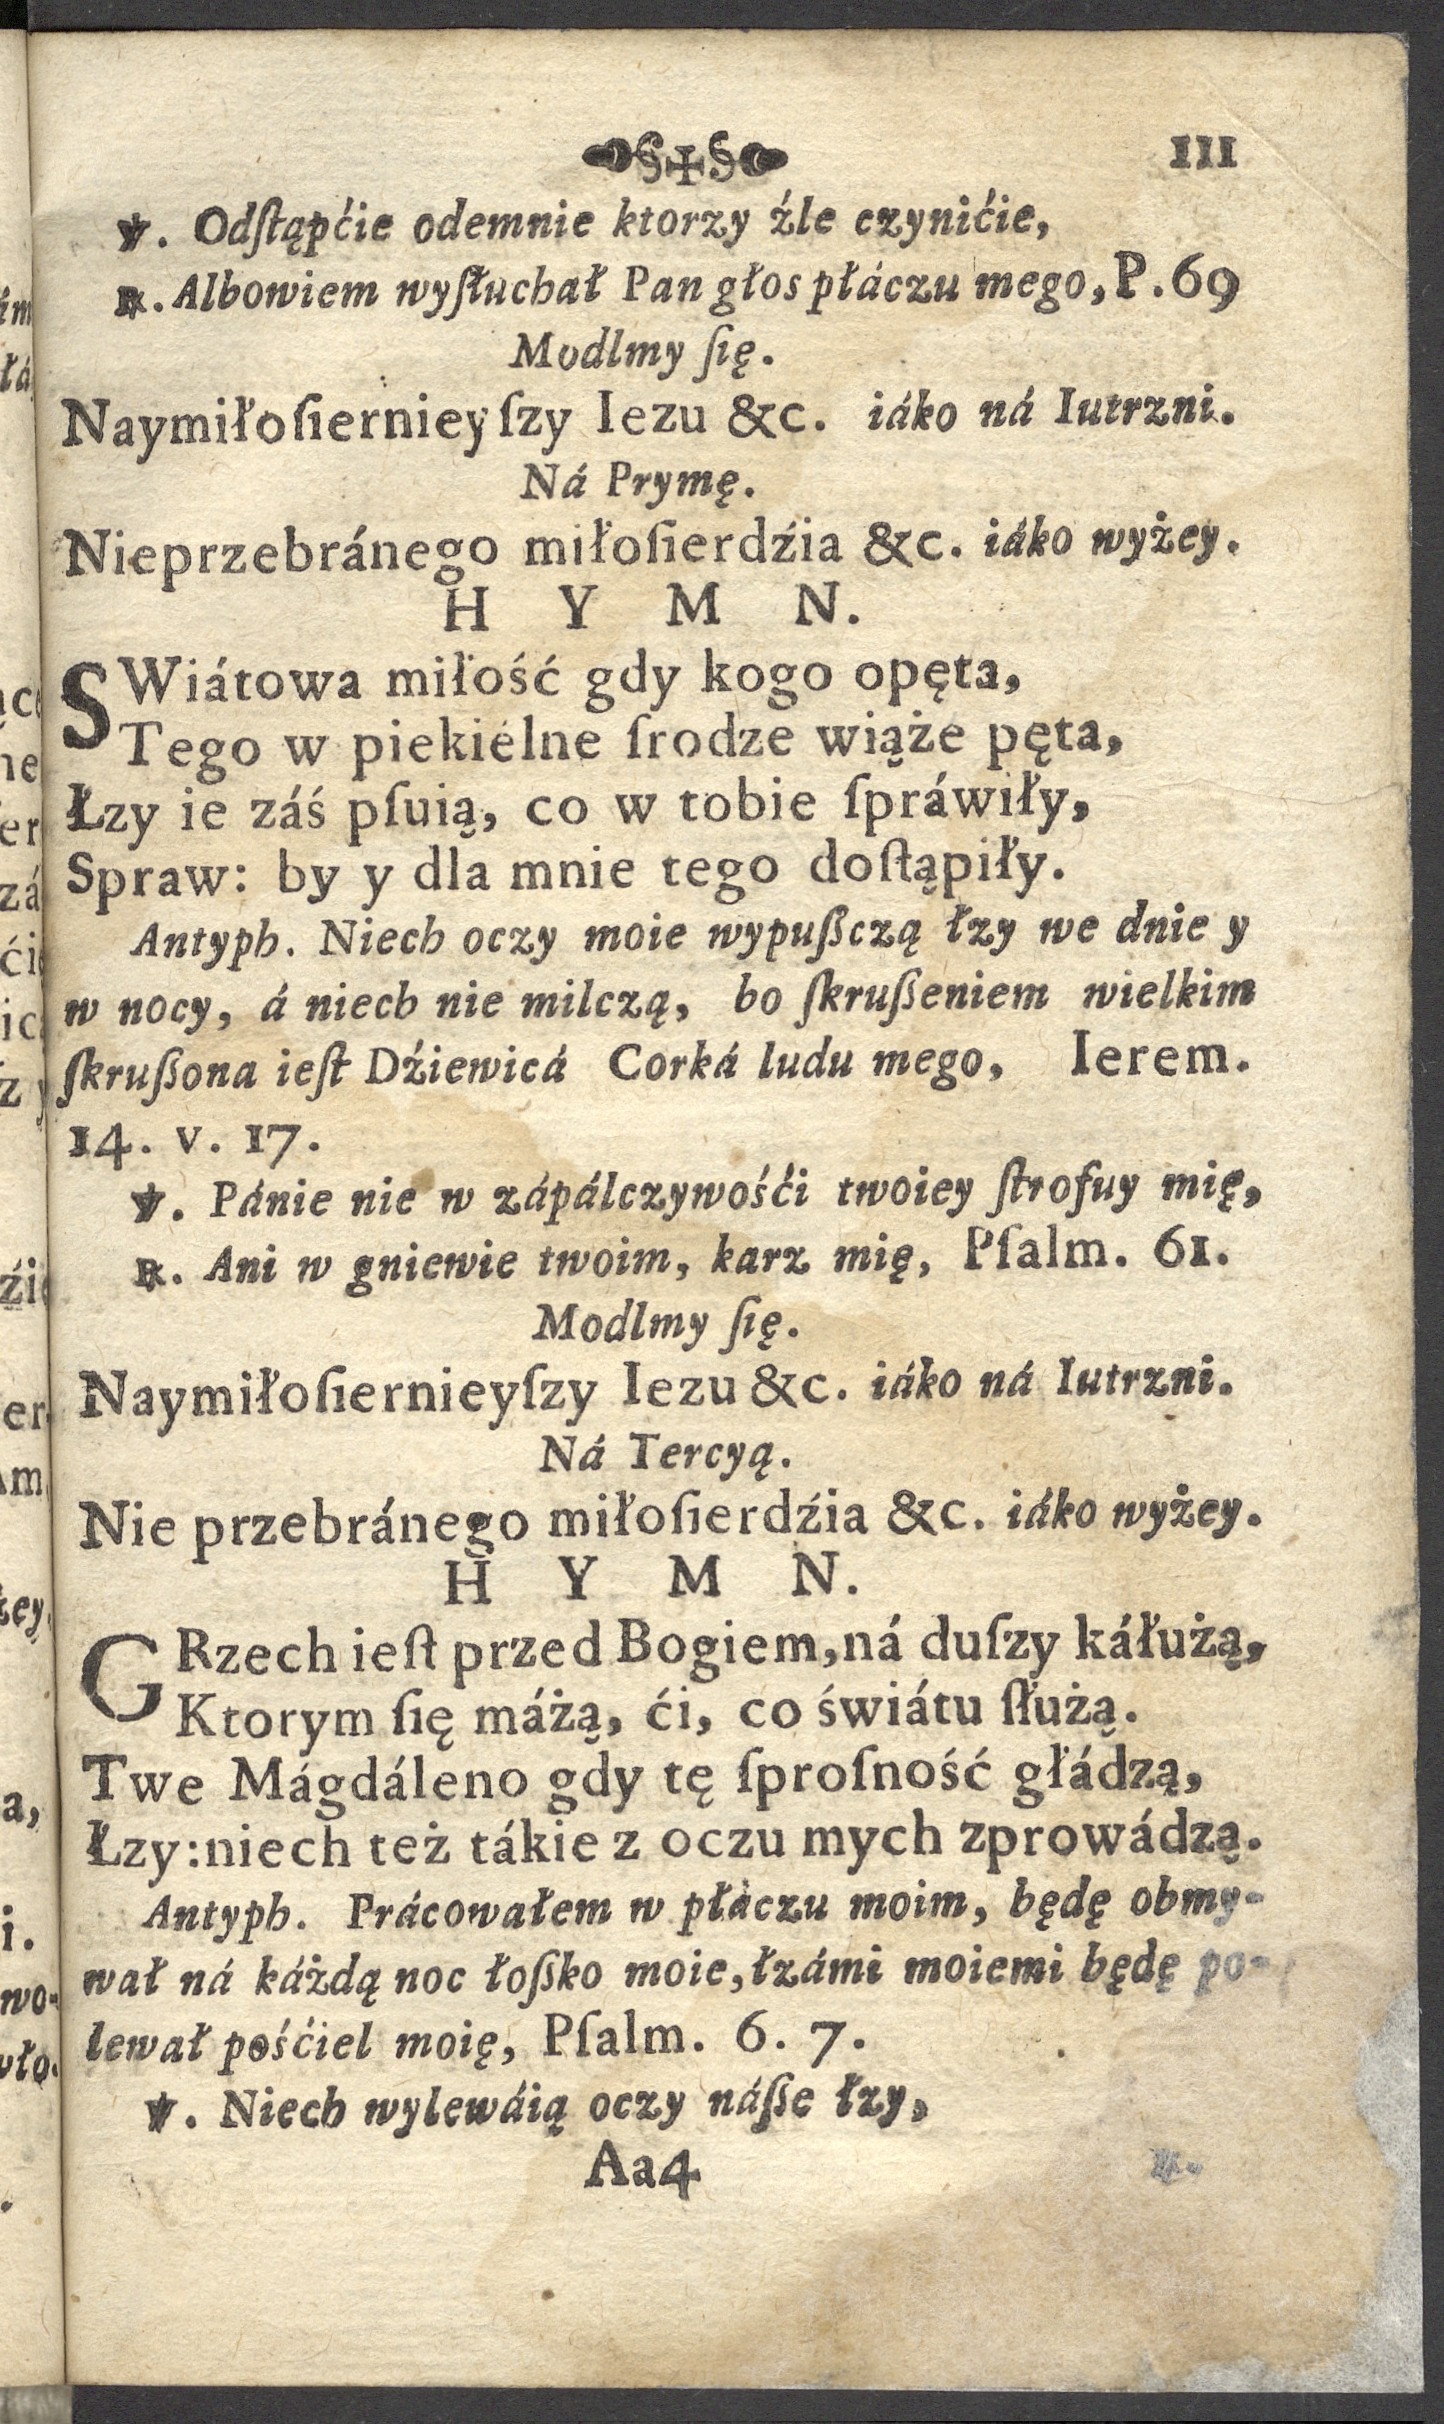 III
℣. Odſtąpćie odemnie ktorzy źle czynićie,
℟. Albowiem wyſłuchał Pan głos płáczu mego, P. 69
Modlmy ſię.
Naymiłoſiernieyſzy Iezu &c. iáko ná Iutrzni.
Ná Prymę.
Nieprzebránego miłoſierdźia &c. iáko wyżey.
H Y M N.
SWiátowa miłość gdy kogo opęta,
Tego w piekiélne ſrodze wiąże pęta,
Łzy ie záś pſuią, co w tobie ſpráwiły,
Spraw: by y dla mnie tego doſtąpiły.
Antyph. Niech oczy moie wypußczą łzy we dnie y
w nocy, á niech nie milczą, bo ſkrußeniem wielkim
ſkrußona ieſt Dźiewicá Corká ludu mego, Ierem.
14. v. 17.
℣. Pánie nie w zápálczywośći twoiey ſtrofuy mię,
℟. Ani w gniewie twoim, karz mię, Pſalm. 61.
Modlmy ſię.
Naymiłoſiernieyſzy Iezu &c. iáko ná Iutrzni.
Ná Tercyą.
Nie przebránego miłoſierdźia &c. iáko wyżey.
H Y M N.
GRzech ieſt przed Bogiem, ná duſzy káłużą,
Ktorym ſię máżą, ći, co świátu ſłużą.
Twe Mágdáleno gdy tę ſproſność głádzą,
Łzy: niech też tákie z oczu mych zprowádzą.
Antyph. Prácowałem w płáczu moim, będę obmy-
wał ná káżdą noc łoßko moie, łzámi moiemi będę po-
lewał pośćiel moię, Pſalm. 6. 7.
℣. Niech wylewáią oczy náße łzy,
Aa4 ℟.